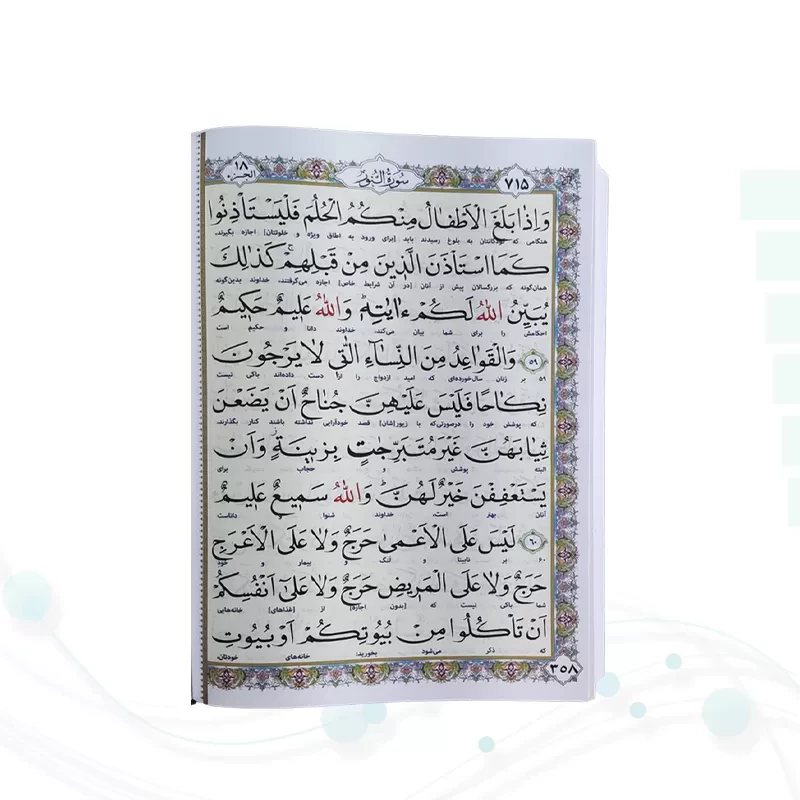 ٧١٥ سورة النور ١٨ الجزء
وَاِذَا بَلَغَ الْاَطْفَالُ مِنْكُمُ الْحُلُمَ فَلْيَسْتَاْذِنُوا
هنگامی که کودکانتان به بلوغ رسیدند باید [برای ورود به اطاق ویژه و خلوتتان] اجازه بگیرند.
كَمَا اسْتَاْذَنَ الَّذينَ مِنْ قَبْلِهِمْ كَذٰلِكَ
همان‌گونه که بزرگسالان پیش از آنان [در آن شرایط خاص] اجازه می‌گرفتند، خداوند بدین‌گونه
يُبَيِّنُ اللّٰهُ لَكُمْ ءَايٰتِهِ وَاللّٰهُ عَليمٌ حَكيمٌ
احکامش را برای شما بیان می‌کند. خداوند دانا و حکیم است
٥٩ وَالْقَوَاعِدُ مِنَ النِّسَاءِ الّٰتي لَا يَرْجُونَ
۵۹ بر زنان سال‌خورده‌ای که امید ازدواج را از دست داده‌اند باکی نیست
نِكَاحًا فَلَيْسَ عَلَيْهِنَّ جُنَاحٌ اَنْ يَضَعْنَ
که پوشش خود را درصورتی‌که با زیور[شان] قصد خودآرایی نداشته باشند کنار بگذارند،
ثِيَابَهُنَّ غَيْرَ مُتَبَرِّجٰتٍ بِزينَةٍ وَاَنْ
البته پوشش و حجاب برای
يَسْتَعْفِفْنَ خَيْرٌ لَهُنَّ وَاللّٰهُ سَميعٌ عَليمٌ
آنان بهتر است، خداوند شنوا داناست
٦٠ لَيْسَ عَلَى الْاَعْمٰى حَرَجٌ وَلَا عَلَى الْاَعْرَجِ
۶۰ بر نابینا و لنگ و بیمار و خود
حَرَجٌ وَلَا عَلَى الْمَريضِ حَرَجٌ وَلَا عَلٰى اَنْفُسِكُمْ
شما باکی نیست که [بدون اجازه] از [غذاهای] خانه‌هایی
اَنْ تَاْكُلُوا مِنْ بُيُوتِكُمْ اَوْ بُيُوتِ
که ذکر می‌شود بخورید: خانه‌های خودتان،
٣٥٨